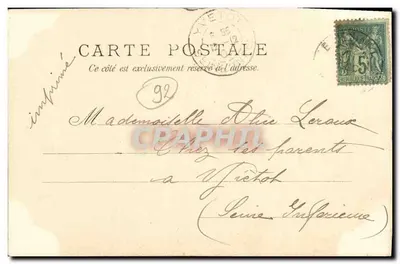 YVETOT
CARTE POSTALE
Ce côté est exclusivement réservé à l'adresse.
5
imprimé
92
Mademoiselle Alice Leroux
CPARAMA
Chez ses parents
a Yvetot
(Seine Inférieure)